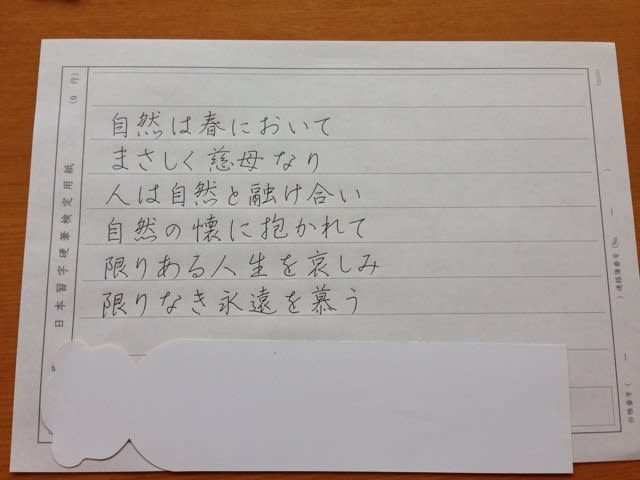 自然は春において
まさしく慈母なり
人は自然と融け合い
自然の懐に抱かれて
限りある人生を哀しみ
限りなき永遠を慕う
日本習字硬筆検定用紙
(9 行)